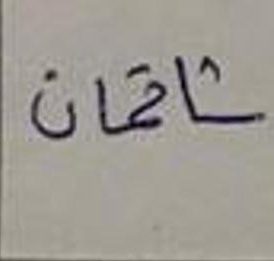 شاقمان